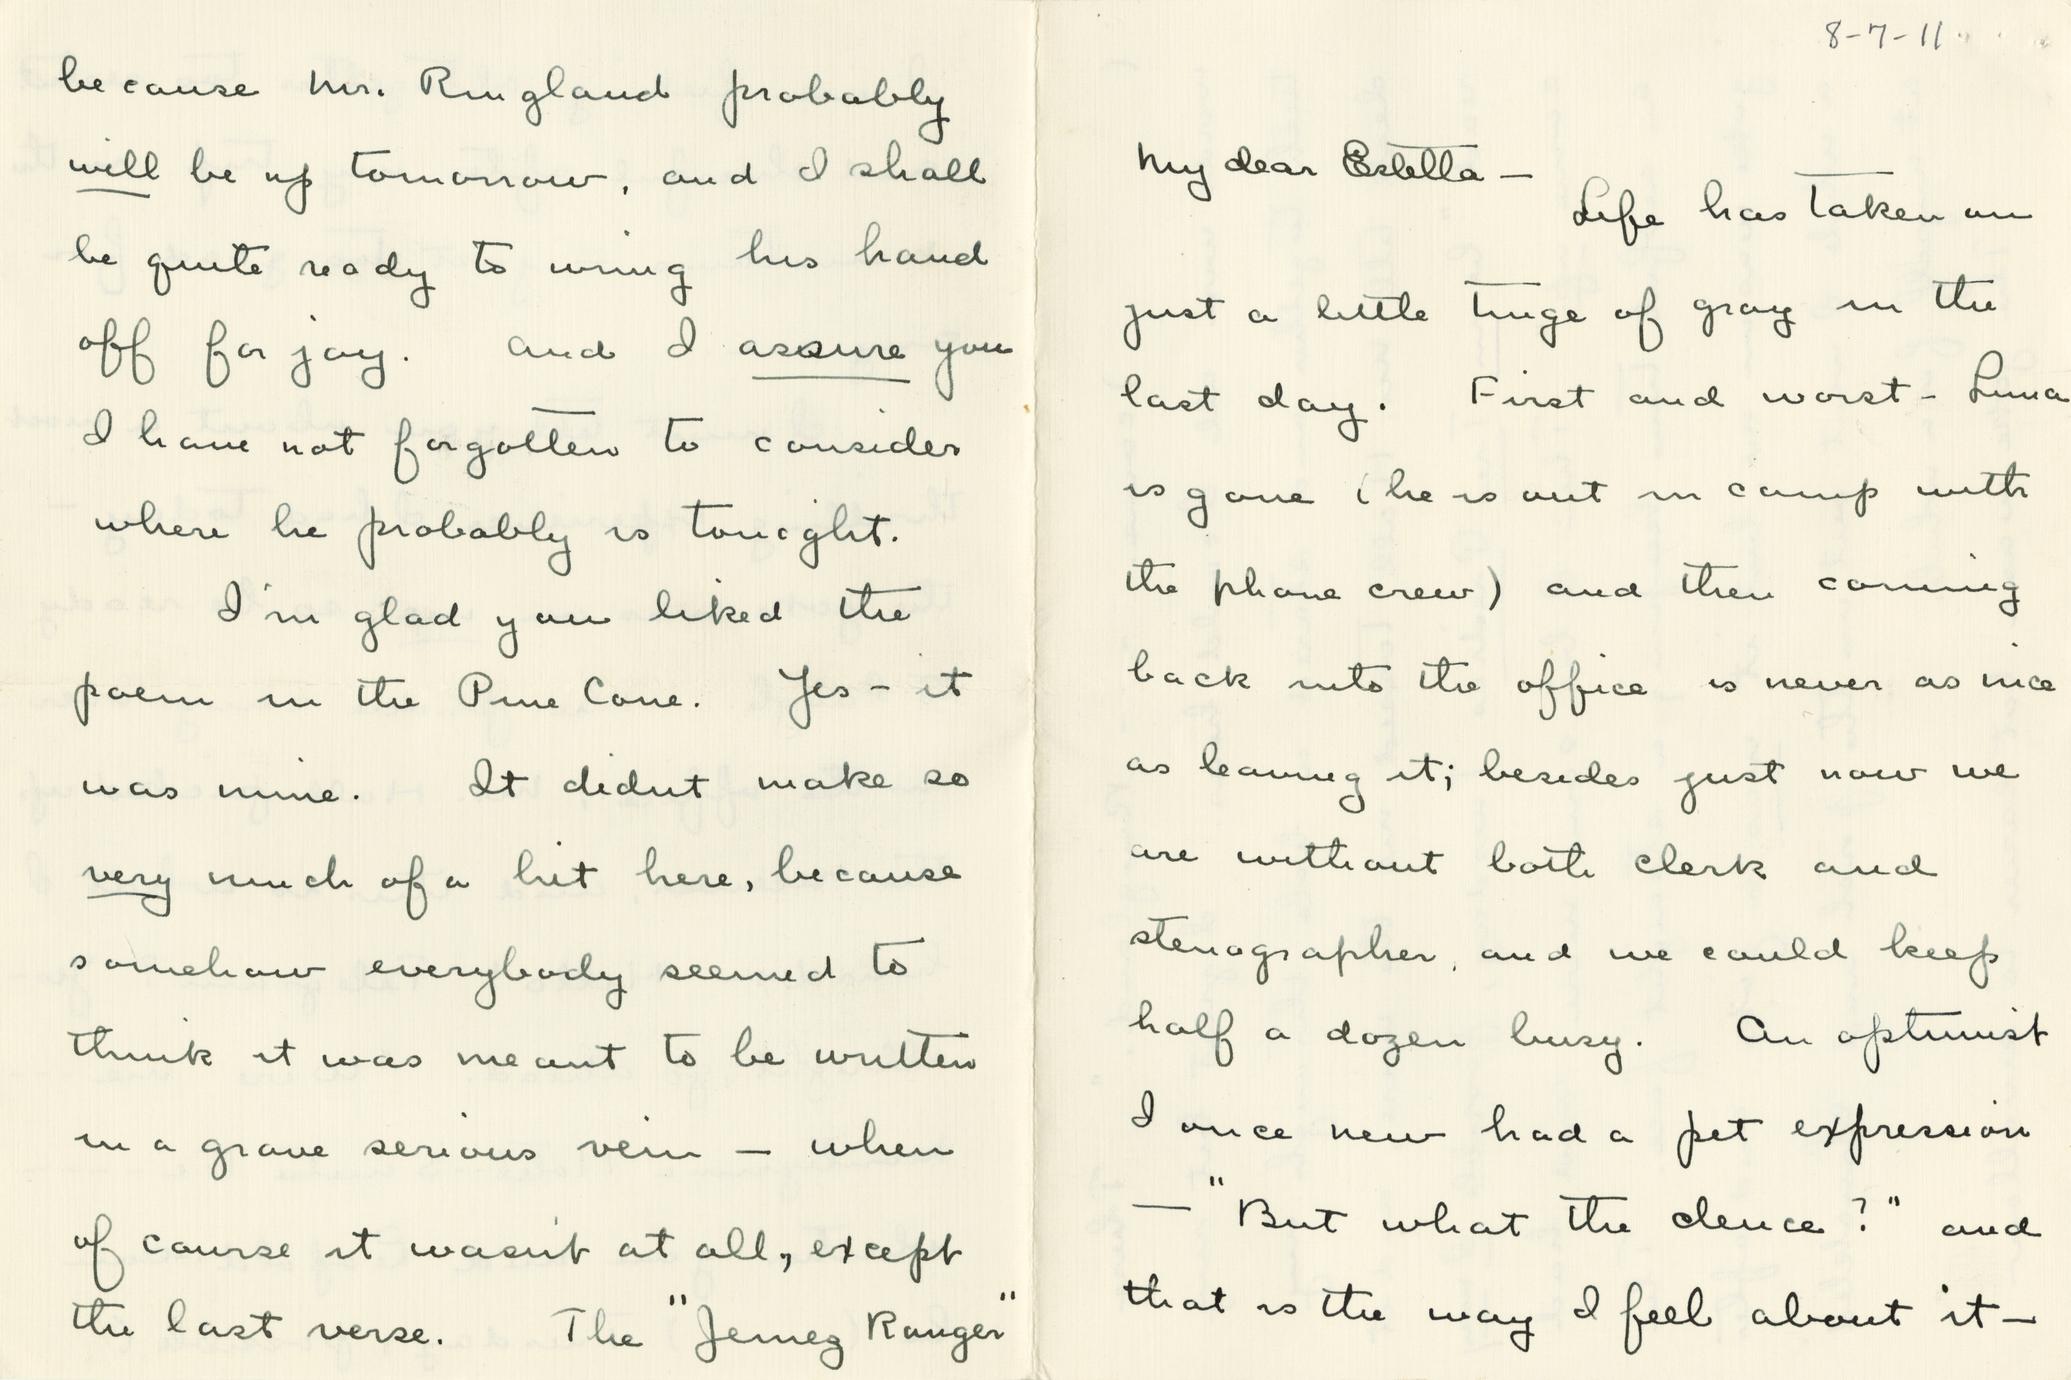 8-7-11
My dear Estella —
Life has taken on
just a little tinge of gray in the
last day. First and worst - Luna
is gone (he is out in camp with
the phone crew) and then coming
back into the office is never as nice
as leaving it; besides just now we
are without both clerk and
stenographer, and we could keep
half a dozen busy. An optimist
I once new had a pet expression
— "But what the deuce?" and
that is the way I feel about it —
because Mr. Ringland probably
will be up tomorrow, and I shall
be quite ready to wring his hand
off for joy. And I assure you
I have not forgotten to consider
where he probably is tonight.
I'm glad you liked the
poem in the Pine Cone. Yes - it
was mine. It didnt make so
very much of a hit here, because
somehow everybody seemed to
think it was meant to be written
in a grave serious vein — when
of course it wasn't at all, except
the last verse. The "Jemez Ranger"